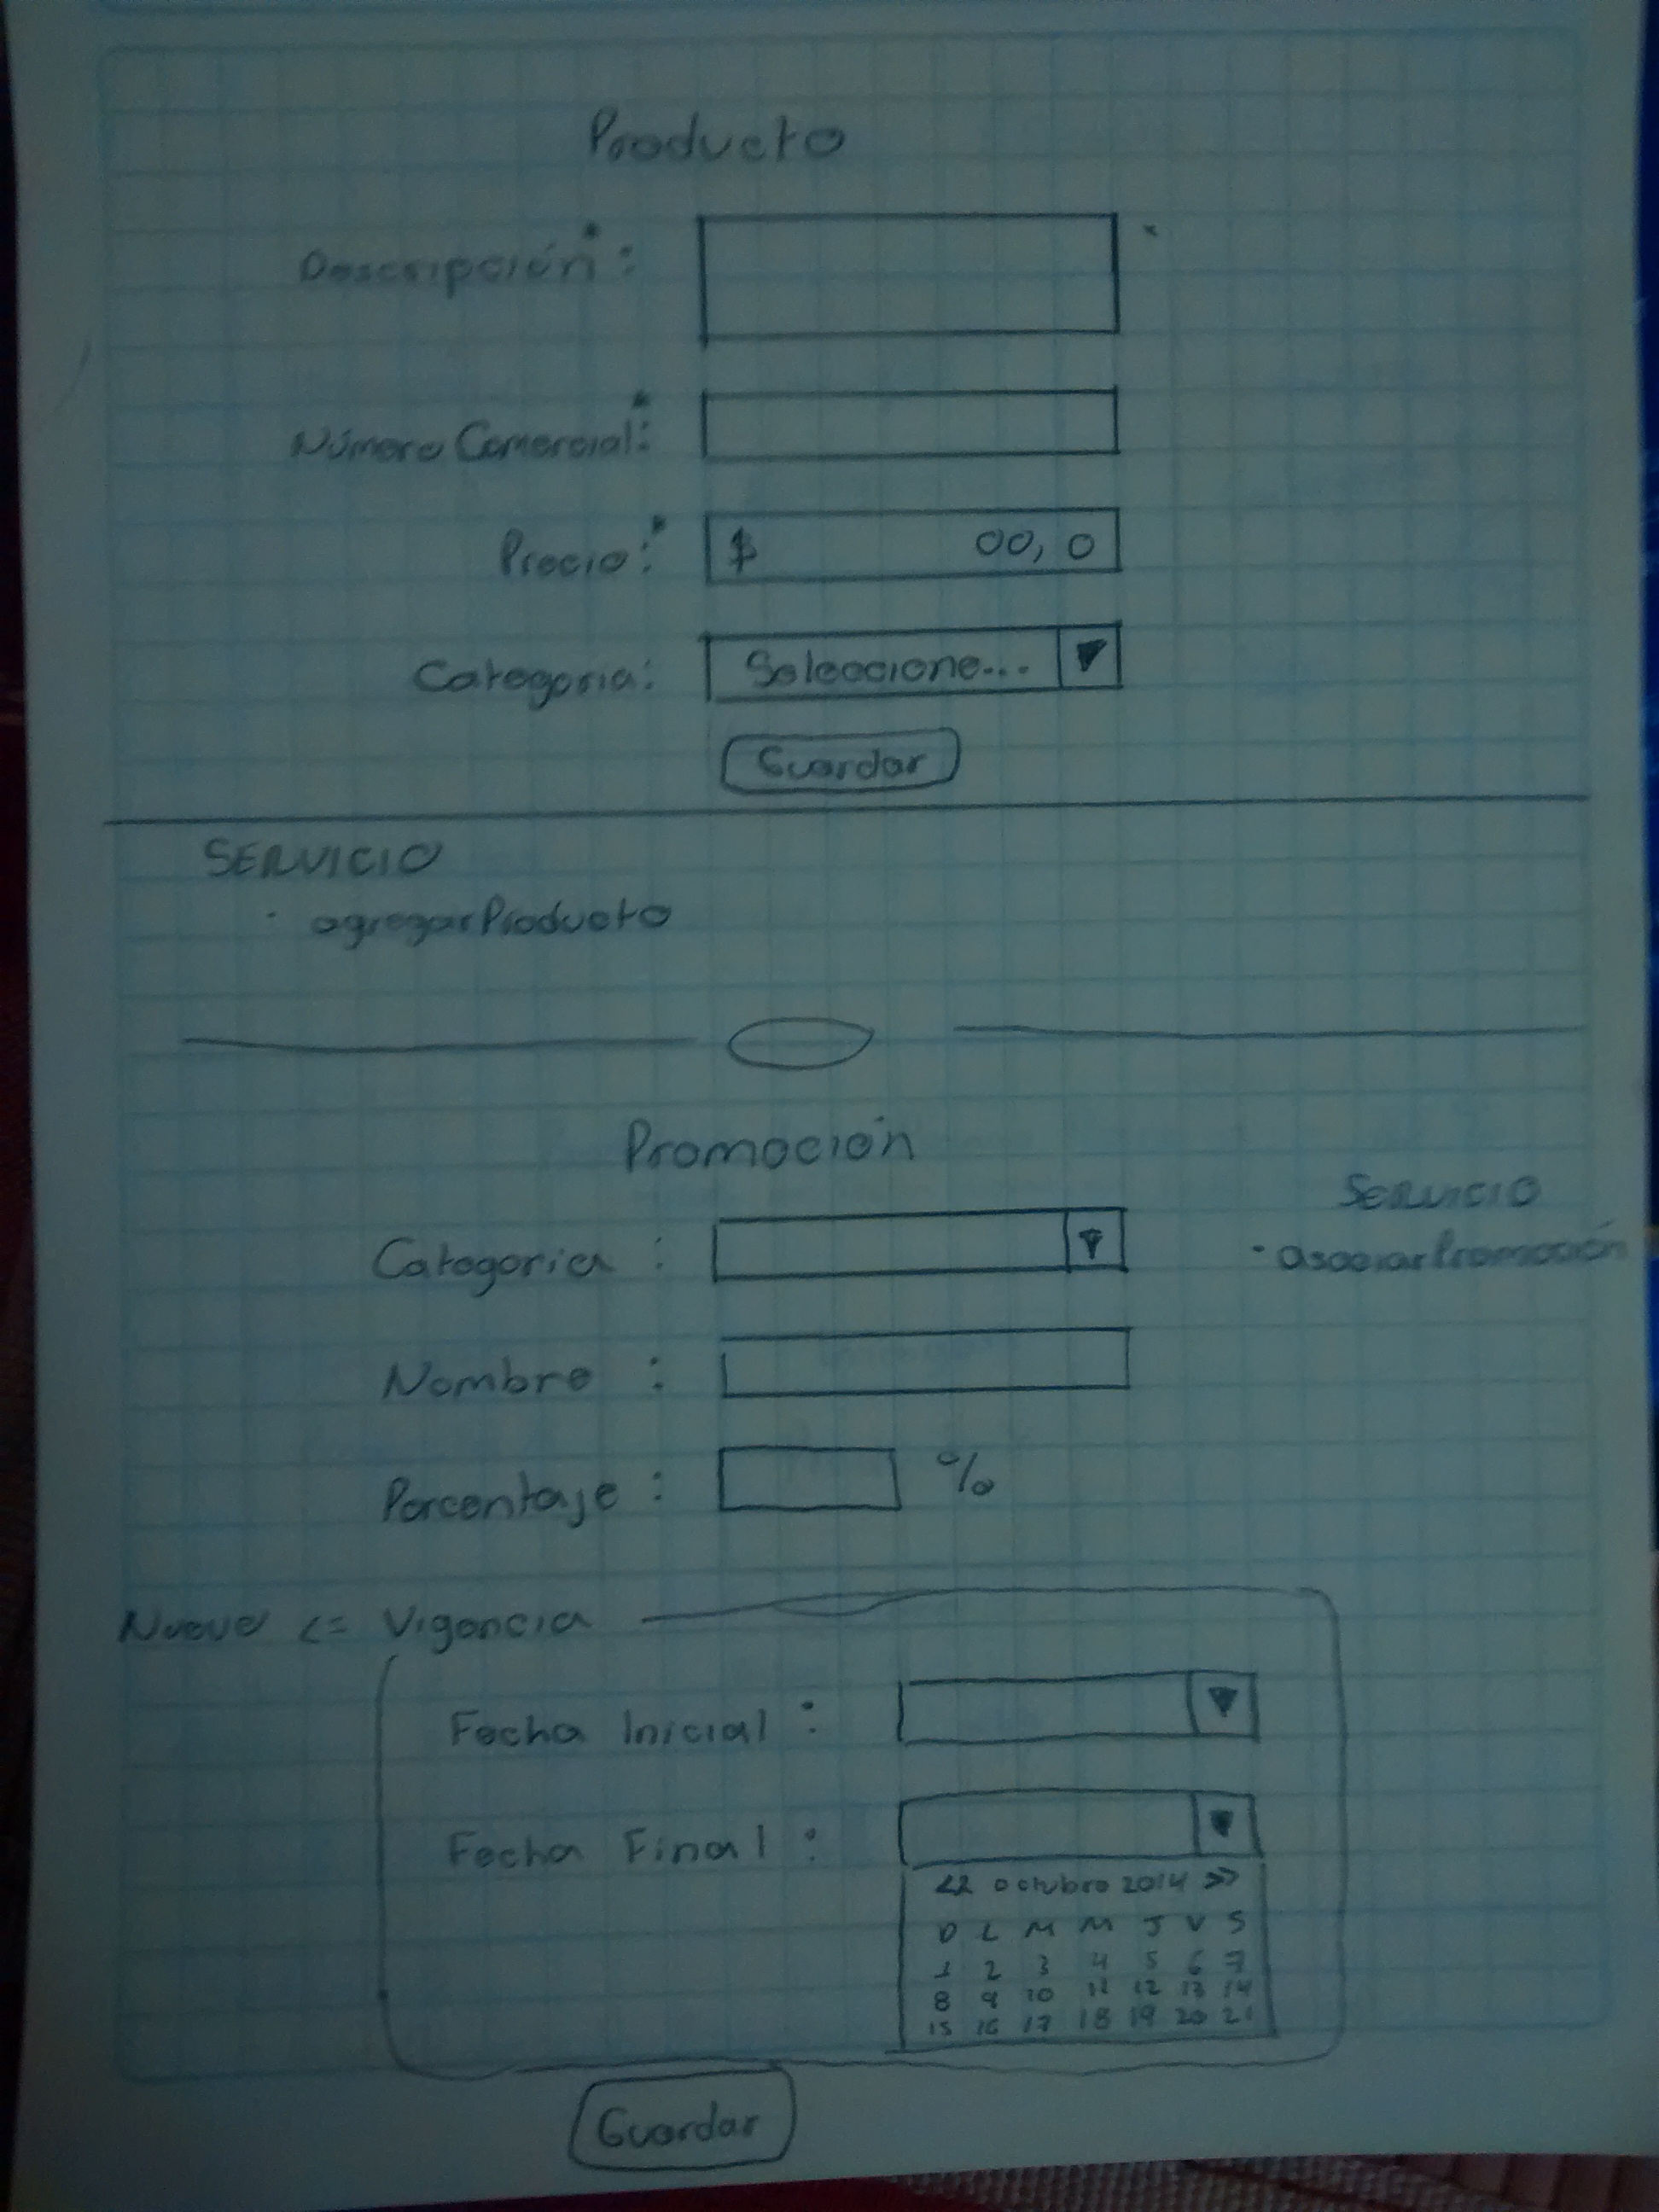 Producto
Descripción*:
Número Comercial*:
Precio:* $ 00,0
Categoria: Seleccione... ▼
Guardar
SERVICIO
· agregarProducto
Promoción
SERVICIO
· asociarPromoción
Categoria :
Nombre :
Porcentaje : %
<= Vigencia
Fecha Inicial :
Fecha Final :
<< octubro 2014 >>
D L M M J V S
1 2 3 4 5 6 7
8 9 10 11 12 13 14
15 16 17 18 19 20 21
Guardar